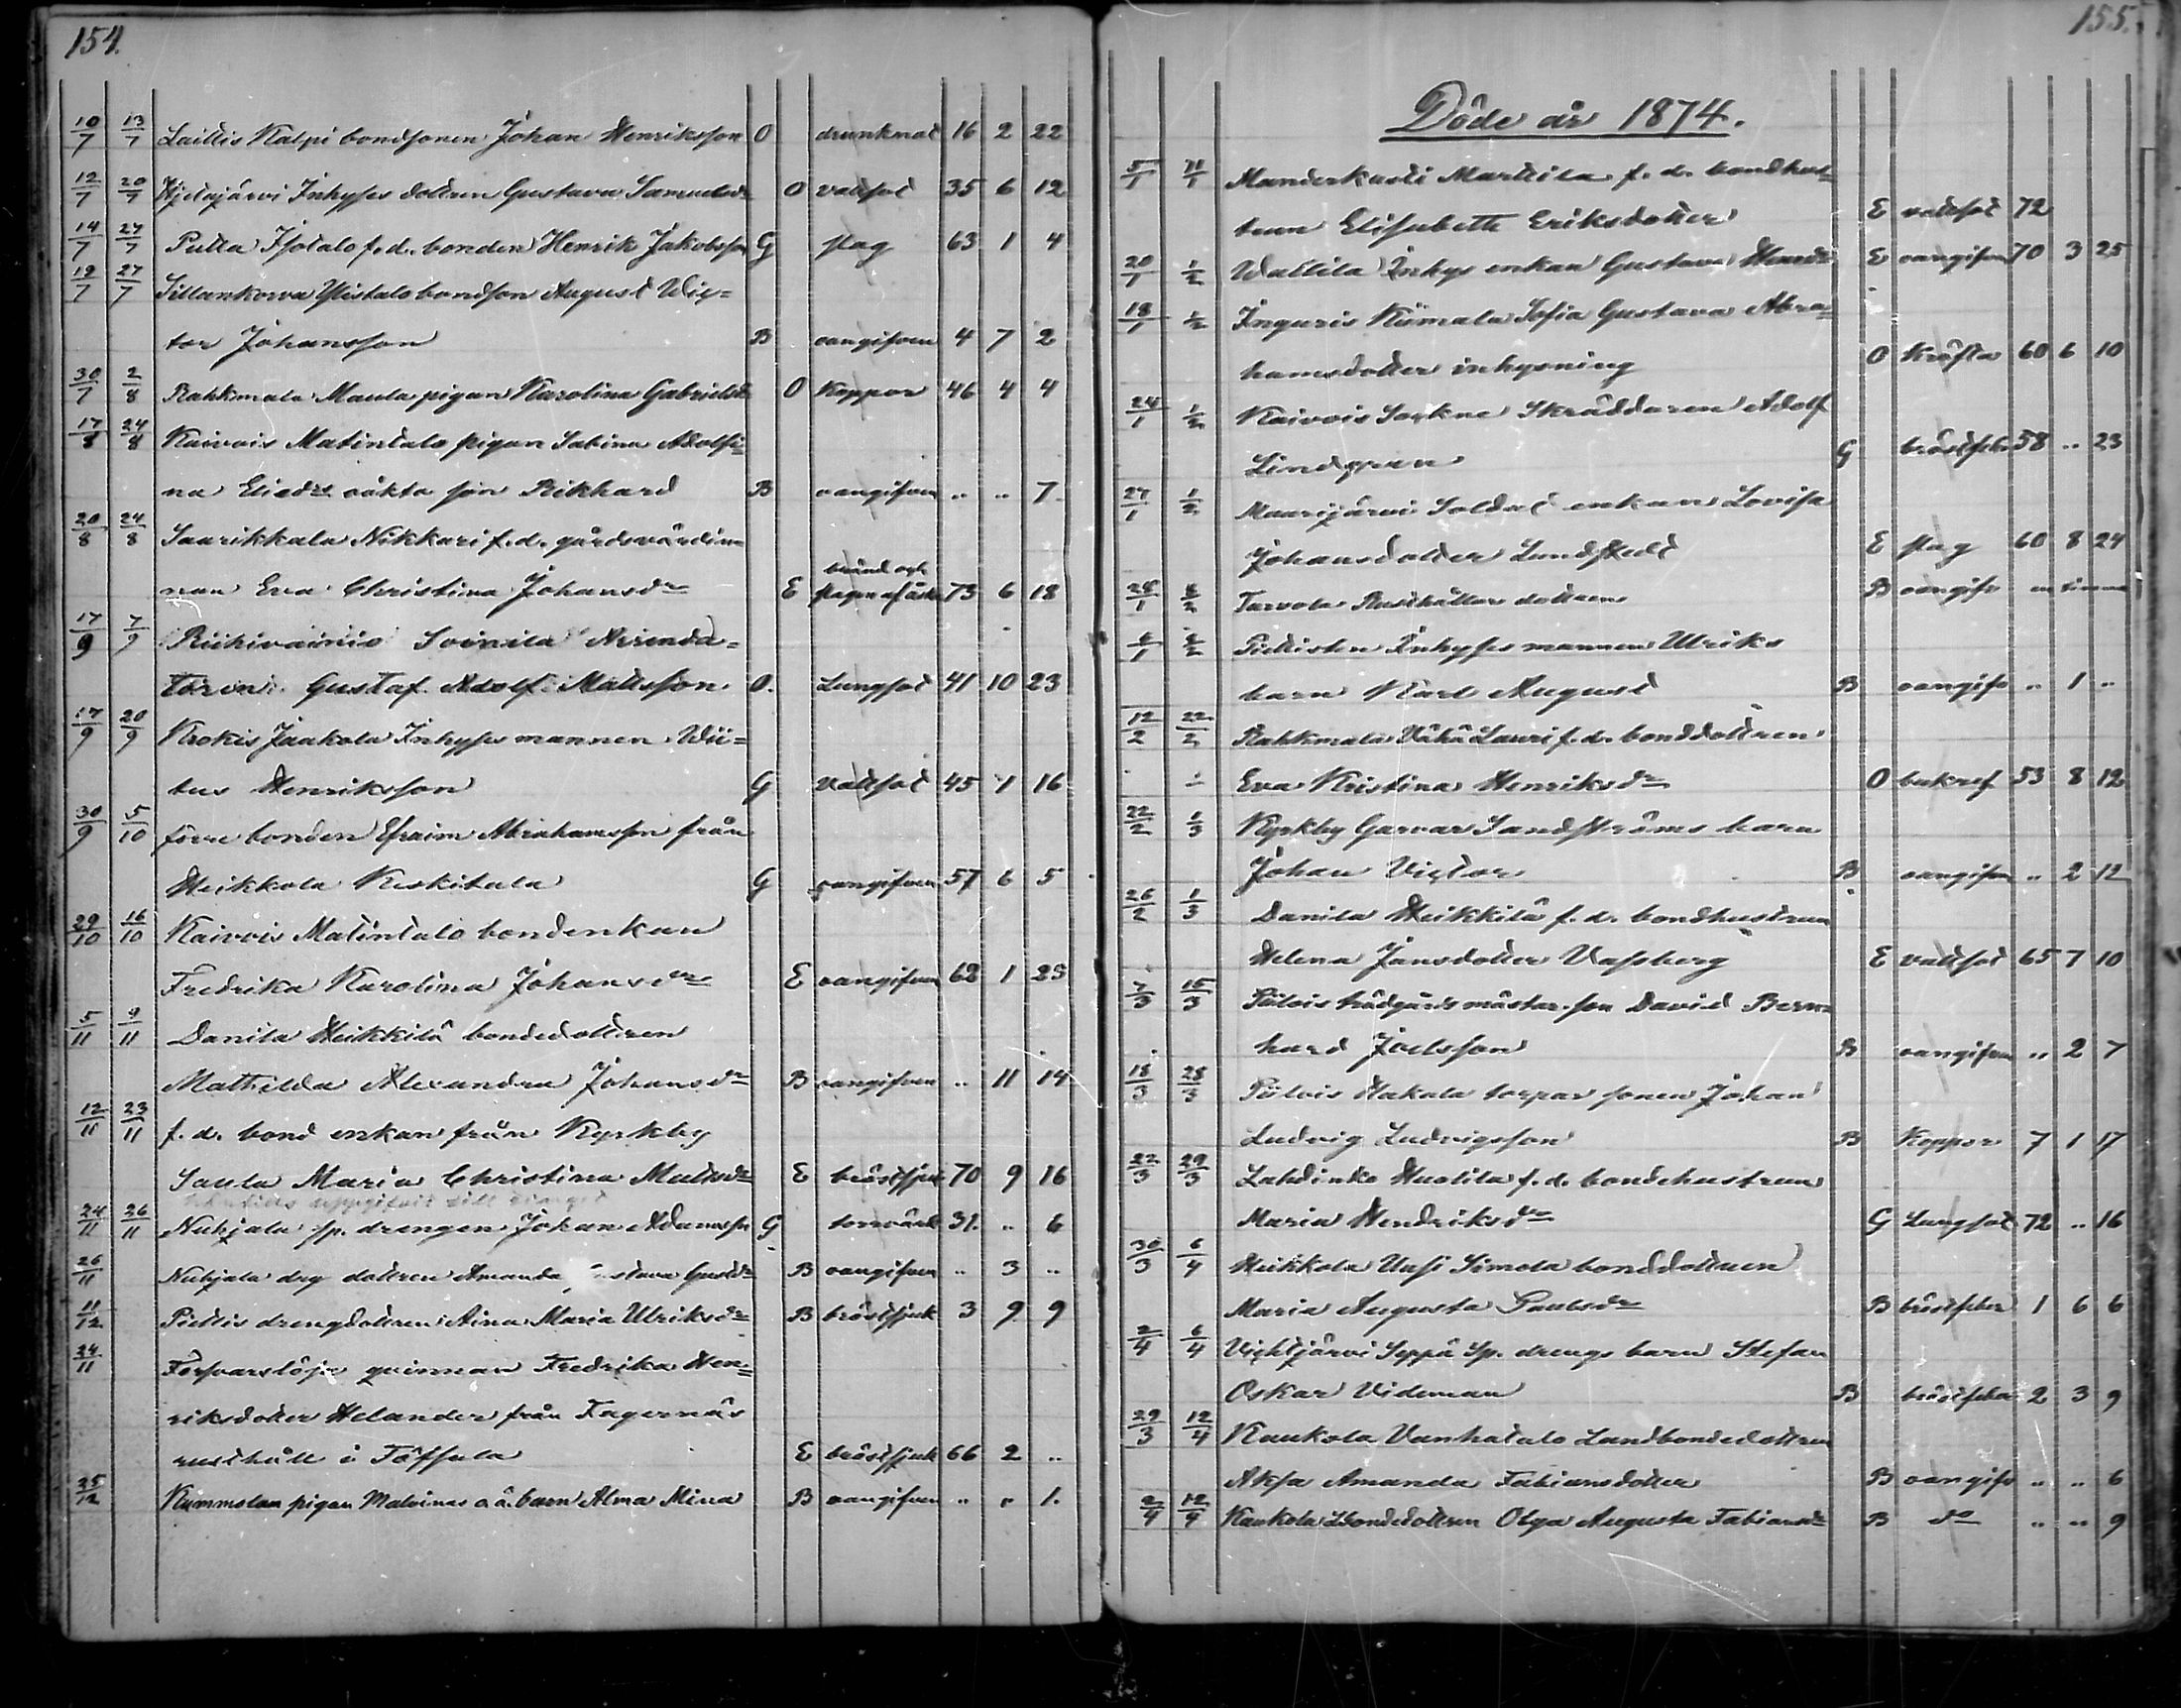 154.
10/7 13/7 Laitis Kalpi bondsonen Johan Henriksson O drunknat 16 2 22
12/7 20/7 Inhyses dottren Gustava Samuelsdr O vattsot 35 6 12
14/7 27/7 Putta Isotalo f.d. bonden Henrik Jakobsson G slag 63 1 4
19/7 27/7 Sillankorva Ylistalo bondson August Wic=
tor Johansson B oangifven 4 7 2
30/7 2/8 Rahkmala Maula pigan Karolina Gabrielsdr O Koppor 46 4 4
17/8 24/8 Kaivois Matintalo pigan Sabina Adolfi=
na Eliedr oäkta son Rikhard B oangifven .. .. 7
20/8 24/8 Saarikkala Nikkari f.d. gårdsvärdin
nan Eva Christina Johansdr E bränd och slagen af åska 73 6 18
17/9 7/9 Soinila Arrenda=
toren Gustaf Adolf Matsson O. Lungsot 41 10 23
17/9 20/9 Krokis Jaakola Inhyses mannen Wii=
tus Henriksson G Vattsot 45 1 16
30/9 5/10 förre bonden Efraim Abrahamsson från
Heikkola Keskitala G oangifven 57 6 5
29/10 16/10 Kaivois Matintalo bondenkan
Fredrika Karolina Johansdr E oangifven 62 1 25
5/11 9/11 Danila Heikkilä bondedottren
Mathilda Alexandra Johansdr B oangifven .. 11 14
12/11 23/11 f.d. bond enkan från Kyrkby
Saula Maria Christina Matsdr E bröstsjuk 70 9 16
uppgifvit till
24/11 26/11 Nuhjala sp. drengen Johan Adamsson G 31. .. 6
26/11 Nuhjala drg dottren Amanda Gustdr B oangifven .. 3 ..
11/12 Pietis drengdottren Aina Maria Ulriksdr B bröstsjuk 3 9 9
24/11 Försvarslösa qvinnan Fredrika Hen=
riksdotter Helander från Fagernäs
rusthåll i Töfsala E bröstsjuk 66 2 ..
25/12 Kummolan pigan Malvinas o ä. barn Alma Mina B oangifven .. .. 1.
155.
Döde år 1874.
5/1 11/1 Manderkasti Marttila f.d. bondhus=
trun Elisabeth Eriksdotter E vattsot 72
20/1 1/2 Wallila Inhys enkan Gustava E oangifven 70 3 25
18/1 1/2 Inguris Kiimala Sofia Gustava Abra=
hamsdotter inhysning O Kräfta 60 6 10
24/1 1/2 Kaivois Sockne Skräddaren Adolf
Lindgren G bröstfeber 58 .. 23
27/1 1/2 Maurijärvi Soldat enkan Lovisa
Johansdotter Lundstedt E slag 60 8 24
28/1 Tarvola Rusthållar dottren B oangifv en timme
Inhyses mannen Ulriks
barn Karl August B oangifv .. 1 ..
12/2 22/2 Rahkmala Vähä Lauri f.d. bonddottren
Eva Kristina Henriksdr O bukref 53 8 12
22/2 1/3 Kyrkby Garvar Sandströms barn
Johan Victor B oangifven .. 2 12
26/2 1/3 Danila Heikkilä f.d. bondhustrun
Helena Jansdotter Vassberg E vattsot 65 7 10
7/3 15/3 Piilois trädgårds mästar son David Bern=
hard Joelsson B oangifven .. 2 7
18/3 28/3 Piilois Hakala torpar sonen Johan
Ludvig Ludvigsson B Koppor 7 1 17
22/3 29/3 Lahdinko Huolila f.d. bondehustrun
Maria Hendriksdr G Lungsot 72 .. 16
30/3 6/4 Heikkola Uusi Simola bonddottren
Maria Augusta Paulsdr B bröstfeber 1 6 6
2/4 6/4 Vichtjärvi Seppä Sp. drengs barn Stefan
Oskar Videman B bröstfeber 2 3 9
29/3 12/4 Kaukola Vanhatalo Landbondedottren
Aksa Amanda Fabiansdotter B oangifv .. .. 6
2/4 12/4 Kaukola Bondedottren Olga Augusta Fabiansdr B do .. .. 9